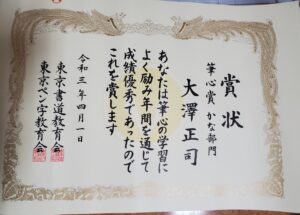 賞状
筆心賞 かな部門
大澤正司
あなたは筆心の学習に
よく励み年間を通じて
成績優秀であったので
これを賞します
令和三年四月一日
東京書道教育会
東京ペン字教育会